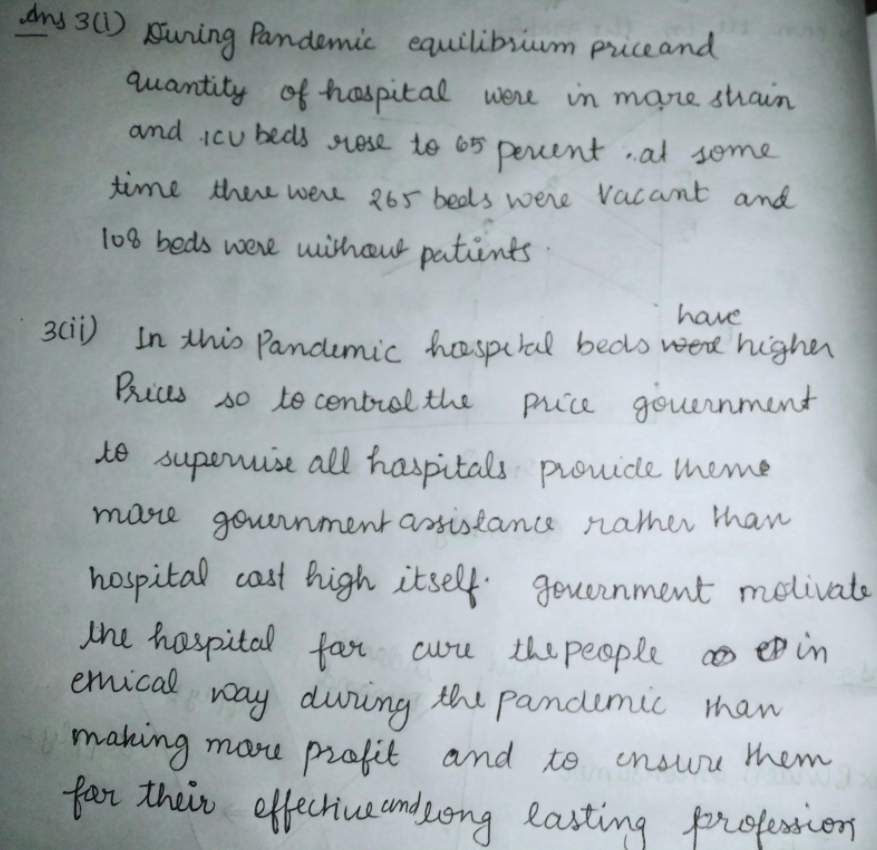 Ans 3(i) During Pandemic equilibrium price and
quantity of hospital were in more strain
and ICU beds rose to 65 percent . at some
time there were 265 beds were Vacant and
108 beds were without patients.
3(ii) In this Pandemic hospital beds have higher
Prices so to control the price government
to supervise all hospitals provide them
more government assistance rather than
hospital cost high itself. government motivate
the hospital for cure the people in
ethical way during the pandemic than
making more profit and to ensure them
for their effective and long lasting profession